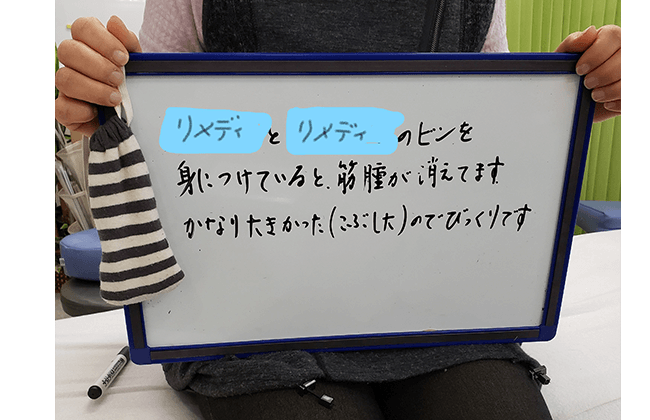 リメディ と リメディ のビンを
身につけていると、筋腫が消えてます
かなり大きかった(こぶし大)のでびっくりです